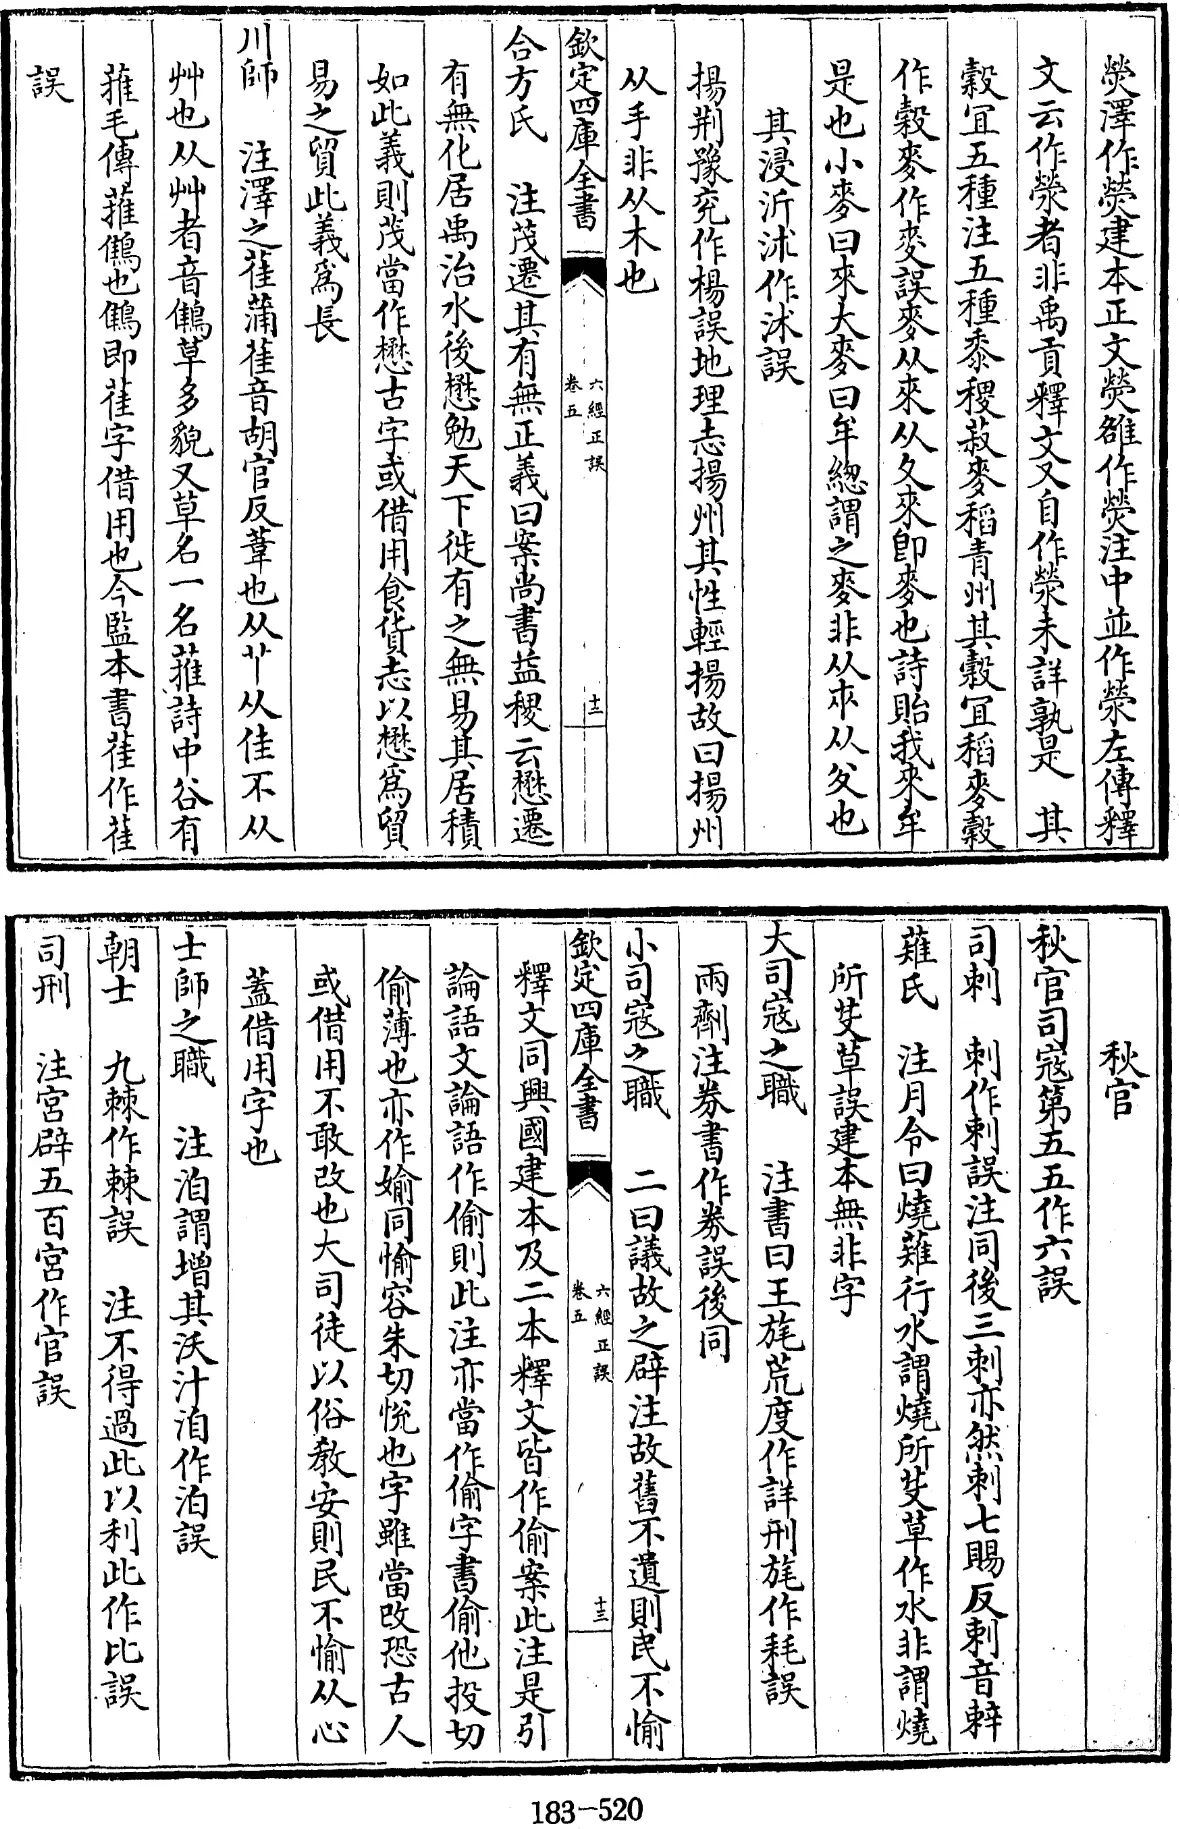 熒澤作熒建本正文熒雒作熒注中並作滎左傳釋
文云作滎者非禹貢釋文又自作滎未詳孰是　其
穀宜五種注五種黍稷菽麥稻青州其穀宜稻麥穀
作穀麥作麦誤麥从來从夊來卽麥也詩貽我來牟
是也小麥曰來大麥曰牟總謂之麥非从夾从夊也
其浸沂沭作沭誤
揚荆豫兖作楊誤地理志揚州其性輕揚故曰揚州
从手非从木也
欽定四庫全書
六經正誤
卷五
十二
合方氏　注茂遷其有無正義曰案尚書益稷云懋遷
有無化居禹治水後懋勉天下徙有之無易其居積
如此義則茂當作懋古字或借用食貨志以懋爲貿
易之貿此義爲長
川師　注澤之萑蒲萑音胡官反葦也从丱从佳不从
艸也从艸者音鵻草多貌又草名一名蓷詩中谷有
蓷毛傳蓷鵻也鵻即萑字借用也今監本書萑作萑
誤
秋官
秋官司寇第五五作六誤
司刺　刺作剌誤注同後三刺亦然刺七賜反剌音辢
薙氏　注月令曰燒薙行水謂燒所芟草作水非謂燒
所芟草誤建本無非字
大司寇之職　注書曰王旄荒度作詳刑旄作耗誤
兩劑注劵書作券誤後同
小司寇之職　二曰議故之辟注故舊不遺則民不愉
欽定四庫全書
六經正誤
卷五
十三
釋文同興國建本及二本釋文皆作偷案此注是引
論語文論語作偷則此注亦當作偷字書偷他投切
偷薄也亦作媮同愉容朱切悅也字雖當改恐古人
或借用不敢改也大司徒以俗教安則民不愉从心
蓋借用字也
士師之職　注洎謂增其沃汁洎作泊誤
朝士　九棘作棘誤　注不得過此以利此作比誤
司刑　注宮辟五百宮作官誤
183-520